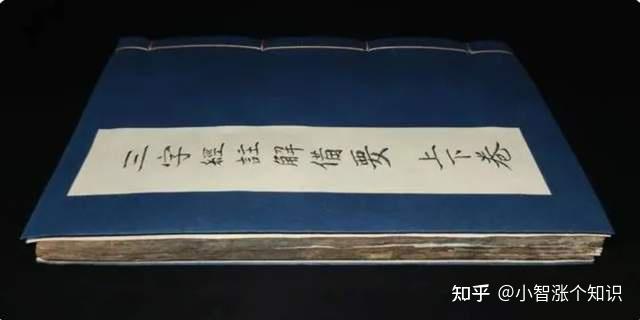 三字經註解借要 上下卷
知乎 @小智涨个知识